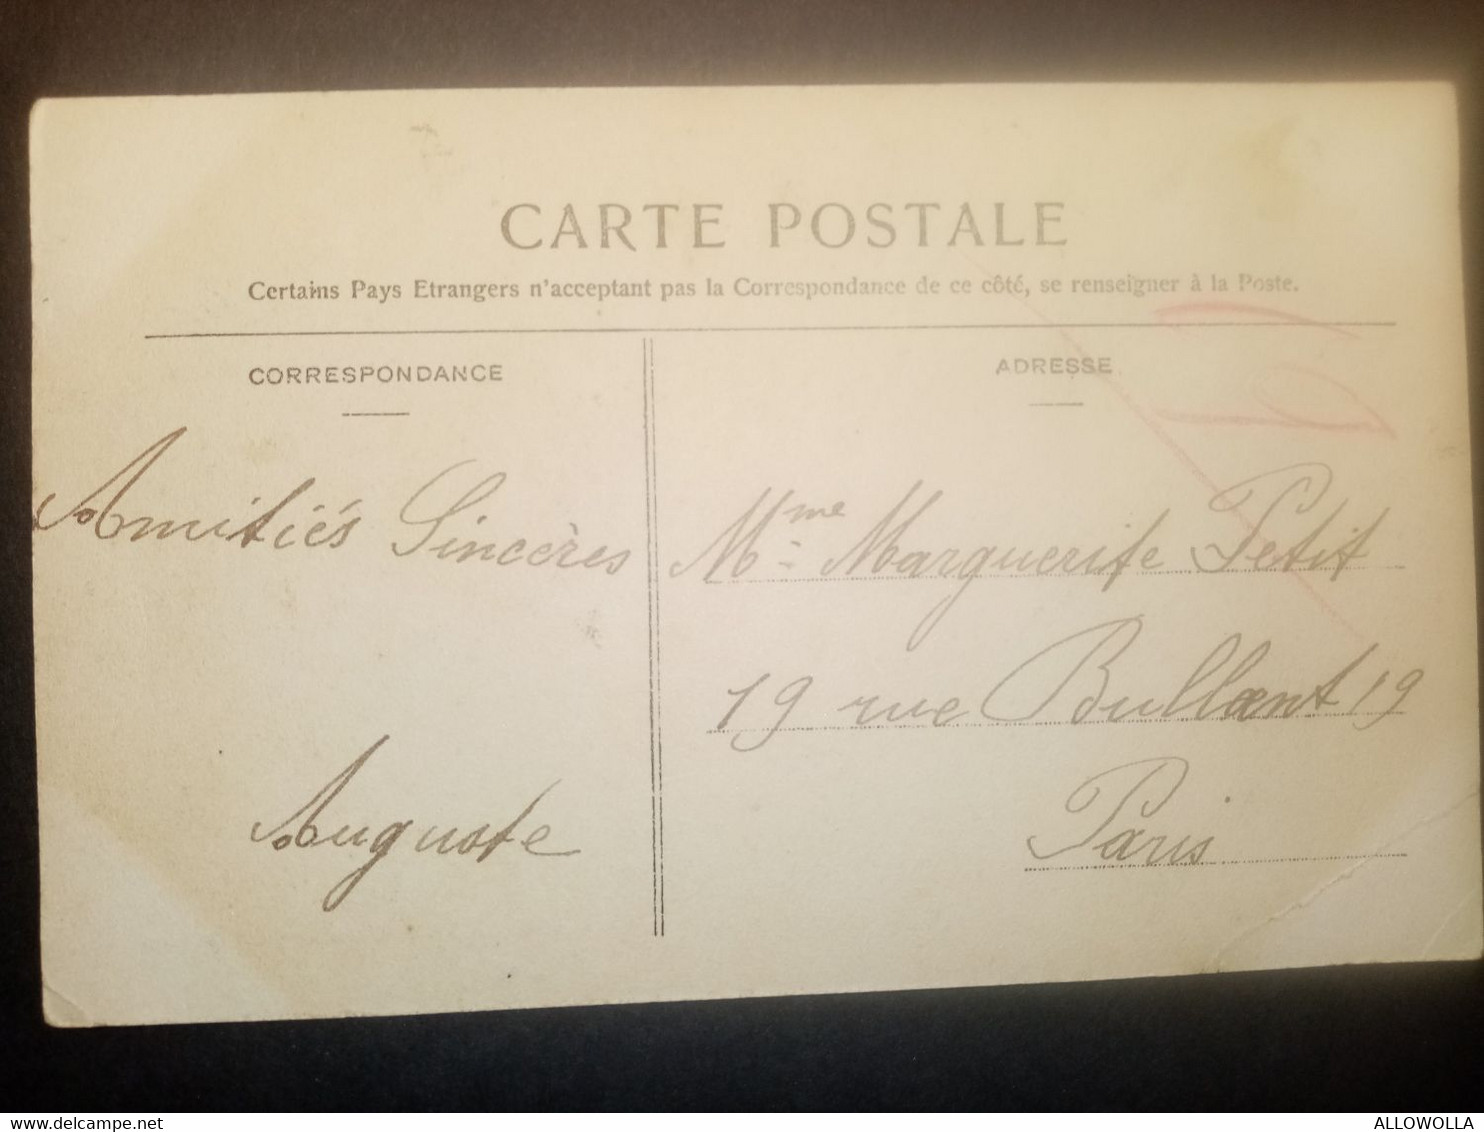 CARTE POSTALE
Certains Pays Etrangers n'acceptant pas la Correspondance de ce côté, se renseigner à la Poste.
CORRESPONDANCE
Amitiés Sincères
Auguste
ADRESSE
Mme Marguerite Petit
19 rue Bullant 19
Paris
delcampe.net
ALLOWOLLA